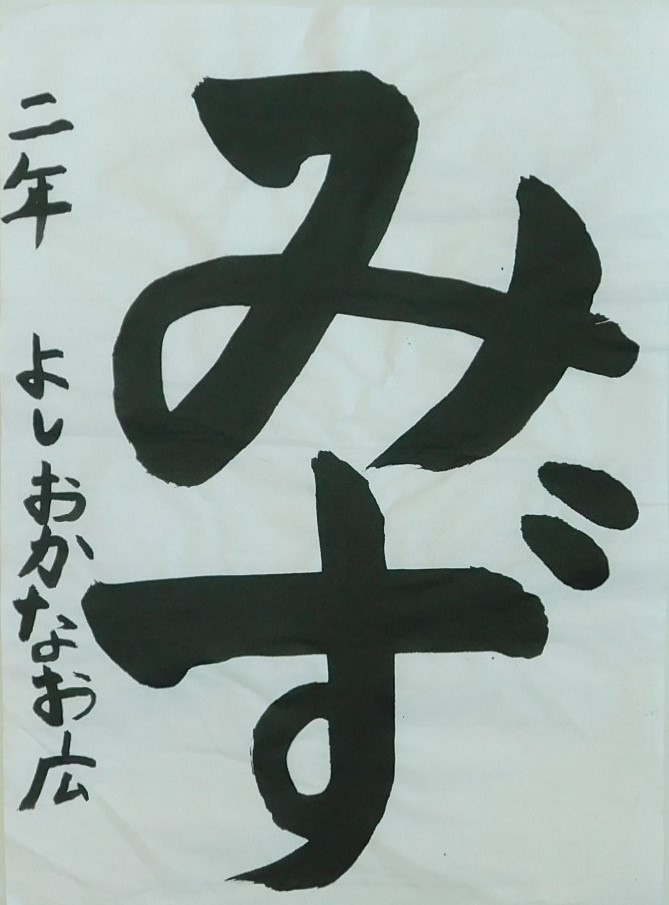 みず
二年 よしおかなお広